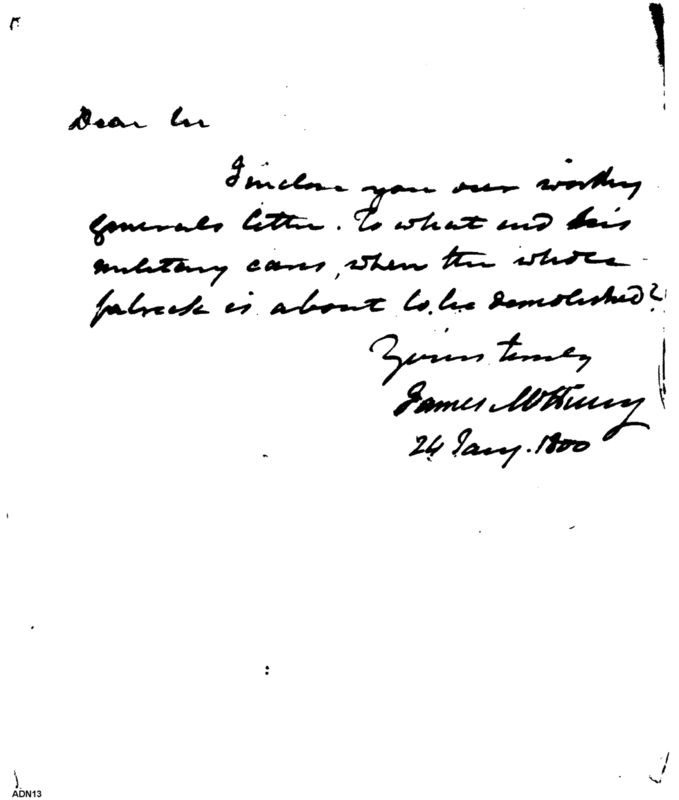 Dear Sir
I inclose you our worthy
generals letter. To what end his
military cares, when the whole
fabrick is about to be demolished?
Yours truly
James McHenry
24 Jany. 1800
ADN13